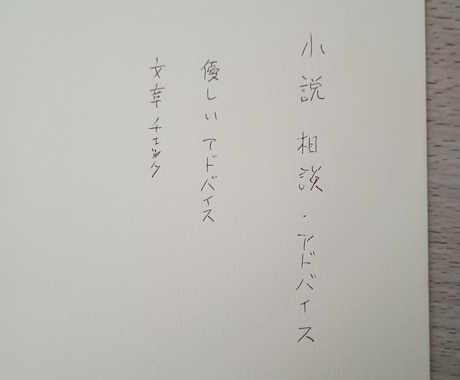 小説 相談・アドバイス
優しいアドバイス
文章チェック